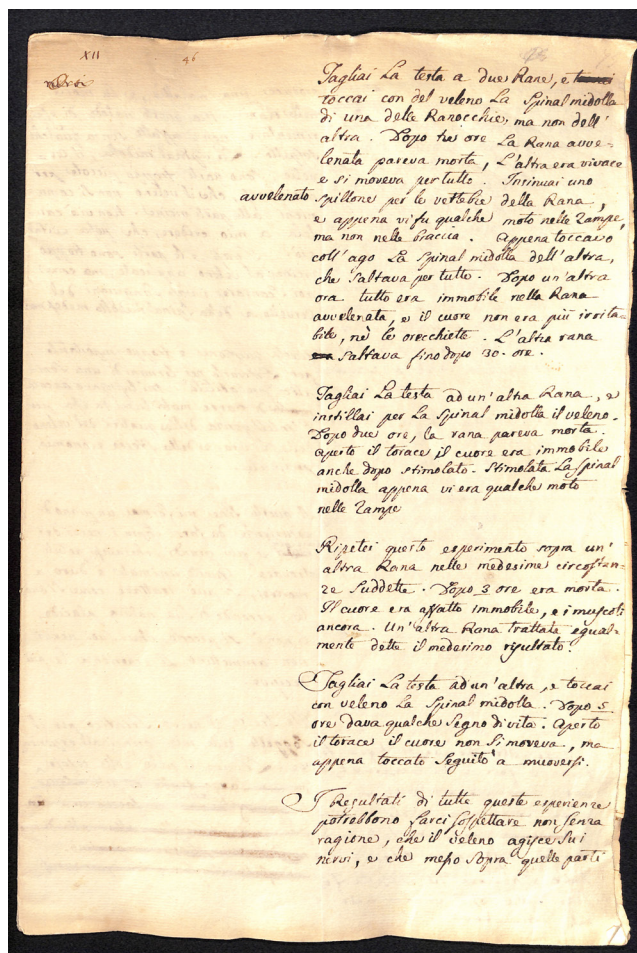 XII
46
Tagliai La testa a due Rane, e
toccai con del veleno La Spinal midolla
di una delle Ranocchie, ma non dell'
altra. Dopo tre ore La Rana avve-
lenata pareva morta, L'altra era vivace
e si moveva per tutto. Insinuai uno
avvelenato spillone per le vertebre della Rana,
e appena vi fu qualche moto nelle Zampe,
ma non nelle braccia. Appena toccavo
coll'ago La Spinal midolla dell'altra,
che Saltava per tutto. Dopo un'altra
ora tutto era immobile nella Rana
avvelenata, e il cuore non era più irrita-
bile, nè le orecchiette. L'altra rana
Saltava fino dopo 30. ore.
Tagliai La testa ad un'altra Rana, e
instillai per La Spinal midolla il veleno.
Dopo due ore, la rana pareva morta.
aperto il torace il cuore era immobile
anche dopo stimolato. Stimolata La Spinal
midolla appena vi era qualche moto
nelle Zampe
Ripetei questo esperimento sopra un'
altra Rana nelle medesime circostan-
ze Suddette. Dopo 3 ore era morta.
Il cuore era affatto immobile, e i muscoli
ancora. Un'altra Rana trattata egual-
mente dette il medesimo risultato.
Tagliai La testa ad un'altra, e toccai
con veleno La Spinal midolla. Dopo 5
ore dava qualche Segno di vita. Aperto
il torace il cuore non Si moveva, ma
appena toccato Seguitò a muoversi.
I Resultati di tutte queste esperienze
potrebbono farci sospettare non senza
ragione, che il veleno agisce Sui
nervi, e che messo Sopra quelle parti